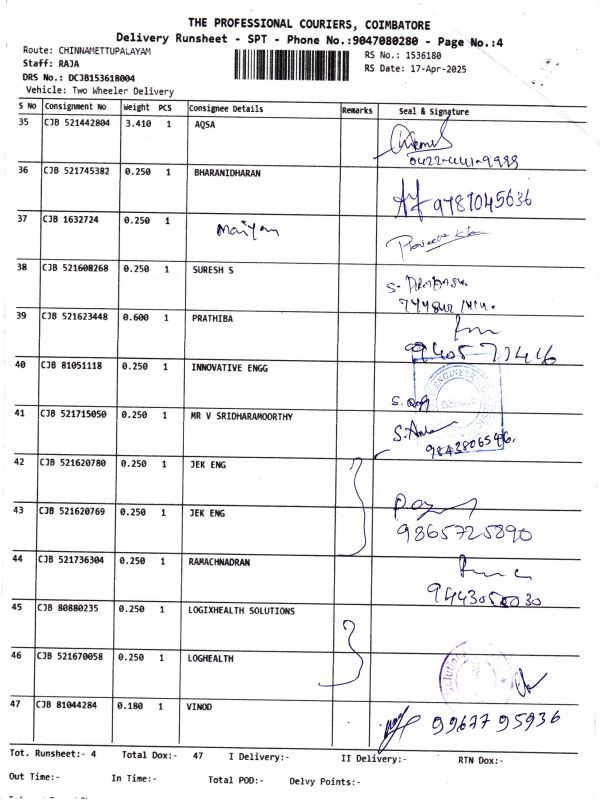 THE PROFESSIONAL COURIERS, COIMBATORE
Delivery Runsheet - SPT - Phone No.:9047080280 - Page No.:4
Route: CHINNAMETTUPALAYAM
RS No.: 1536180
Staff: RAJA
RS Date: 17-Apr-2025
DRS No.: DCJB153618004
Vehicle: Two Wheeler Delivery
S No Consignment No Weight PCS Consignee Details Remarks Seal & Signature
35 CJB 521442804 3.410 1 AQSA
36 CJB 521745382 0.250 1 BHARANIDHARAN
9787045636
37 CJB 1632724 0.250 1
38 CJB 521608268 0.250 1 SURESH S
39 CJB 521623448 0.600 1 PRATHIBA
40 CJB 81051118 0.250 1 INNOVATIVE ENGG
ENGINEER
41 CJB 521715050 0.250 1 MR V SRIDHARAMOORTHY
9843806546.
42 CJB 521620780 0.250 1 JEK ENG
43 CJB 521620769 0.250 1 JEK ENG
9865725890
44 CJB 521736304 0.250 1 RAMACHNADRAN
45 CJB 80880235 0.250 1 LOGIXHEALTH SOLUTIONS
46 CJB 521670058 0.250 1 LOGHEALTH
47 CJB 81044284 0.180 1 VINOD
9967795936
Tot. Runsheet:- 4 Total Dox:- 47 I Delivery:- II Delivery:- RTN Dox:-
Out Time:- In Time:- Total POD:- Delvy Points:-